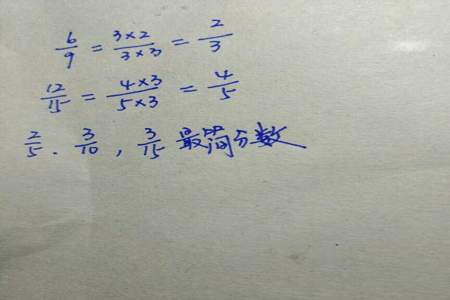 6/9 = 3×2/3×3 = 2/3
12/15 = 4×3/5×3 = 4/5
2/5 . 3/10 , 3/15 最简分数